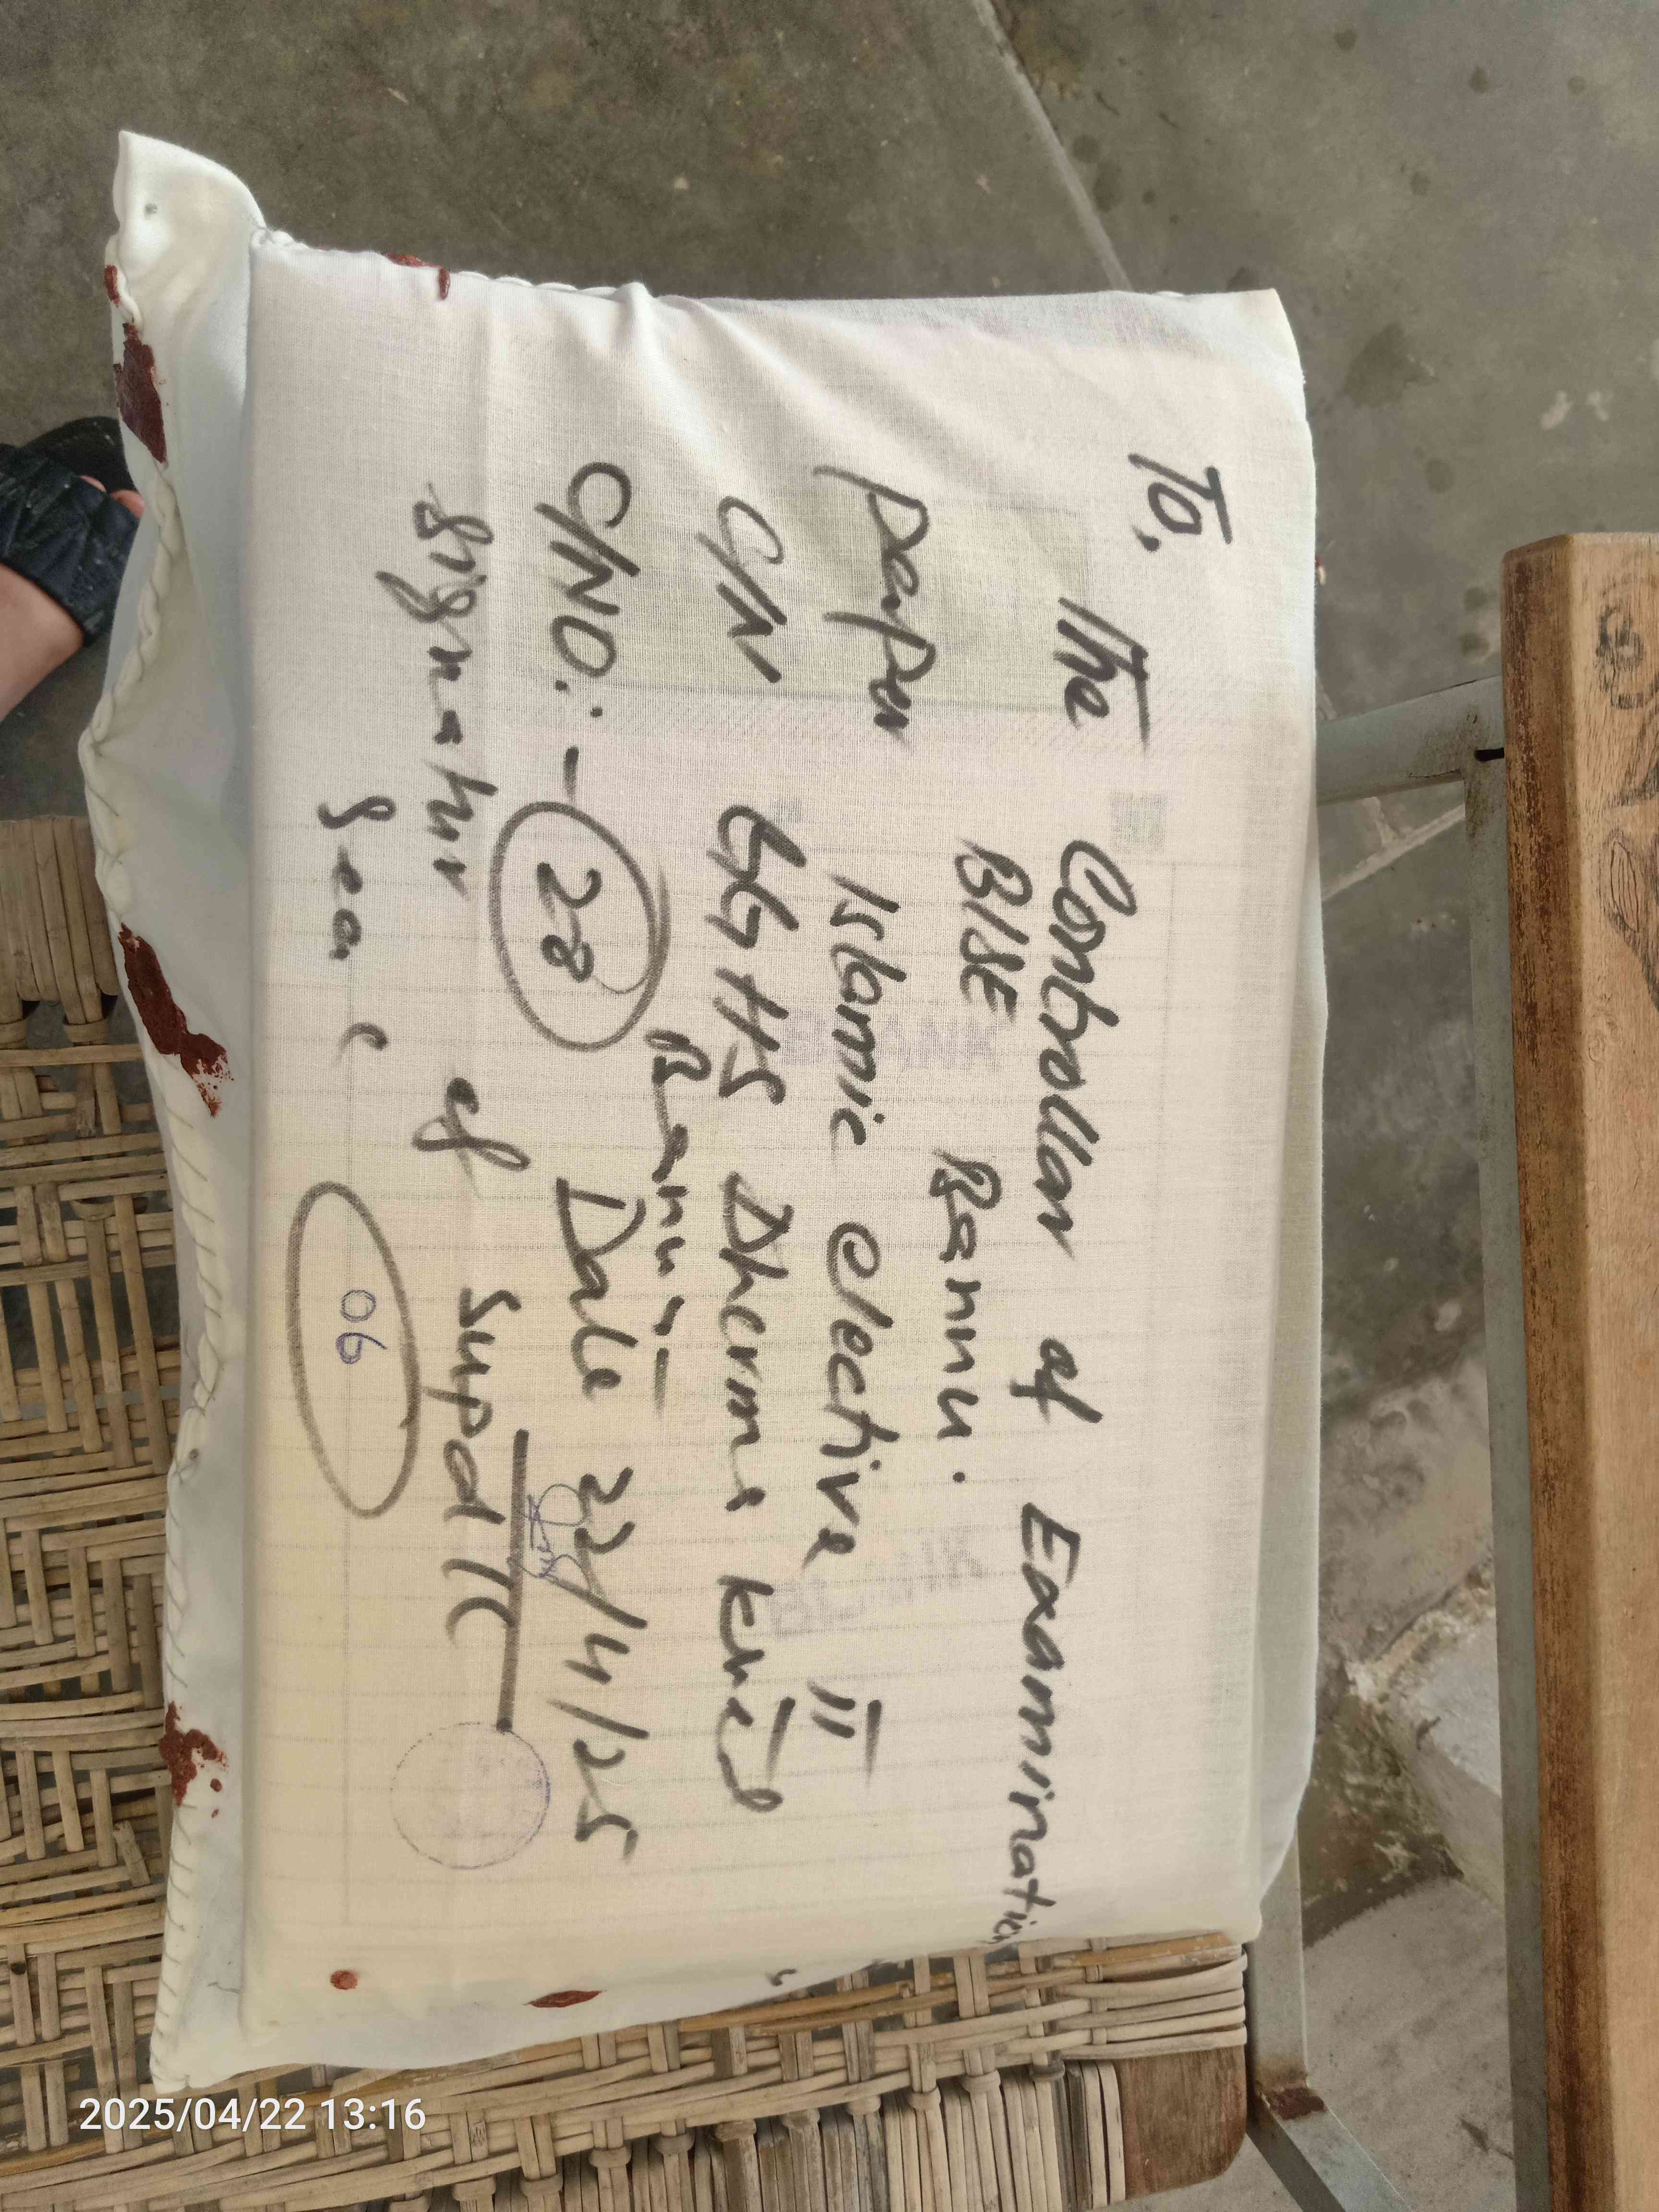 To, The Controllar of Examination
BISE Bannu.
Paper Islamic elective II
C/N GGHS Dherma Khel
Bannu
C/NO:- 28 Date 22/4/25
Signatur of Supdtt
06
2025/04/22 13:16